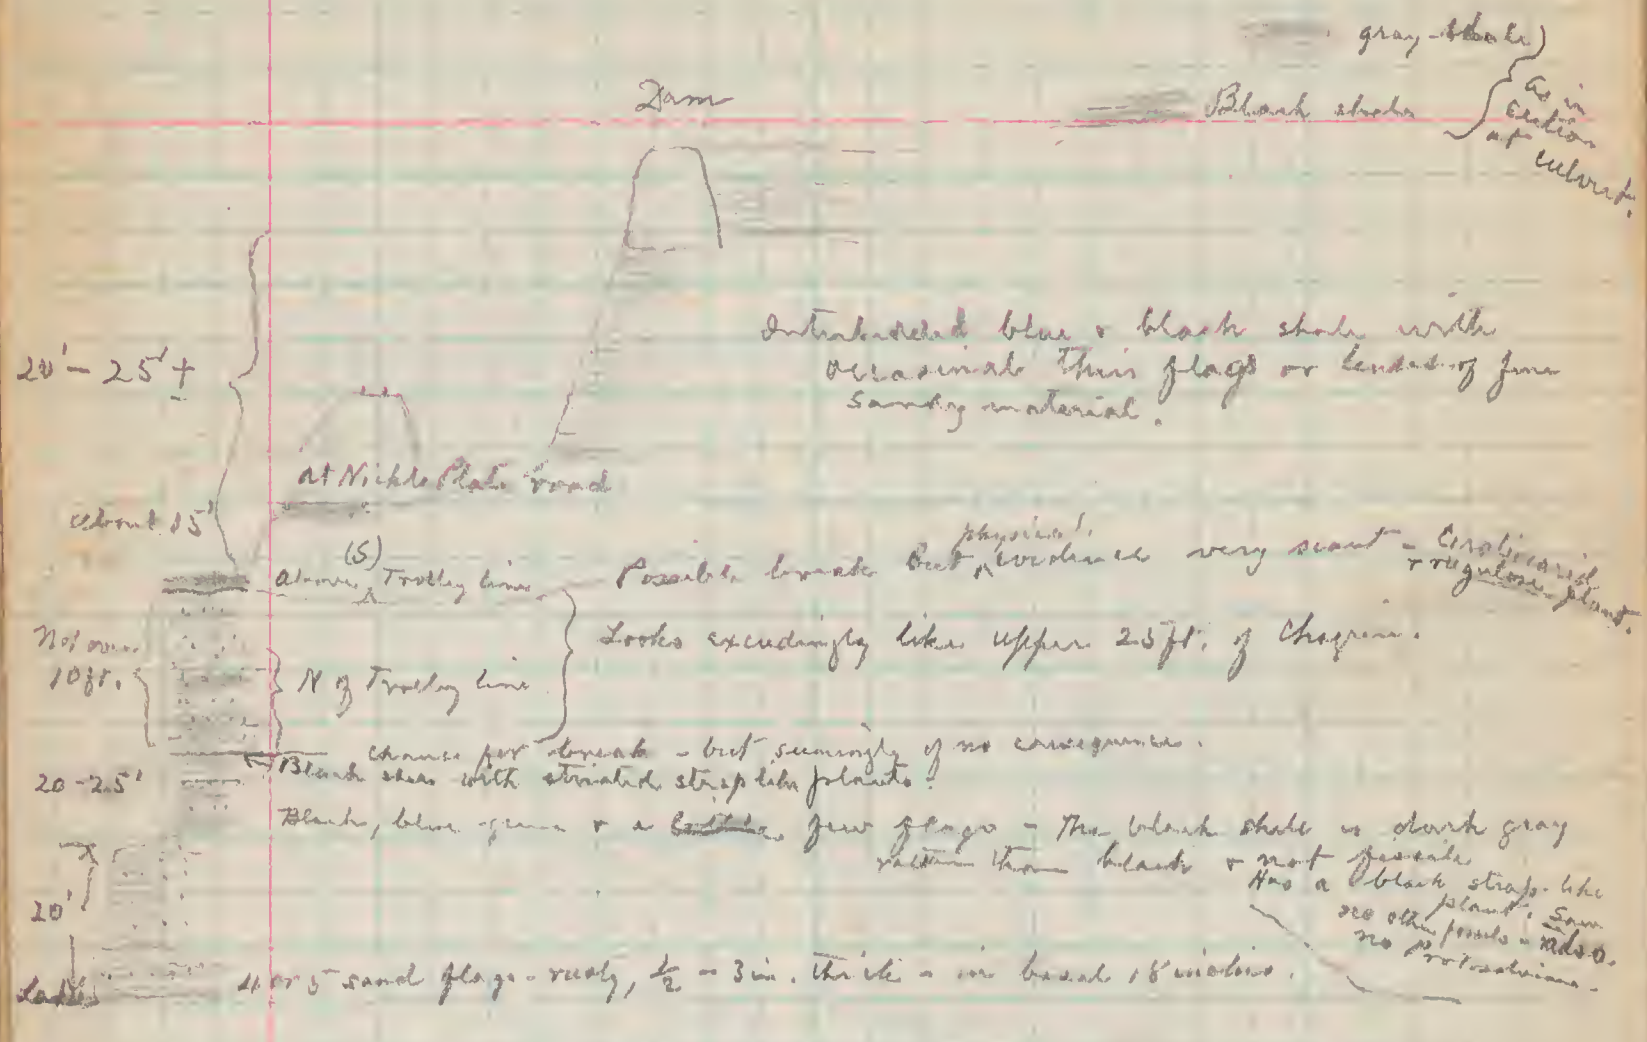 gray shale)
Dam
Black shale
As in
Section
at
culvert.
20' - 25' ±
Interbedded blue & black shale with
occasional thin flags or lenses of fine
sandy material.
at Nickle Plate road
about 15'
(S)
above Trolley line
Possible break but physical evidence very scant -
& rugulose plant.
Looks exceedingly like upper 25 ft. of Chagrin.
Not over
10 ft.
N of Trolley line
chance for break - but seemingly of no consequence.
Black shale with striated strap like plants.
20-25'
Black, blue & a few flags - The black shale is dark gray
rather than black & not fissile
Has a black strap-like
plant. Saw
no other fossils
no Protosalvinia.
20'
4 or 5 sand flags - rusty, ½ - 3 in. thick - in basal 18 inches.